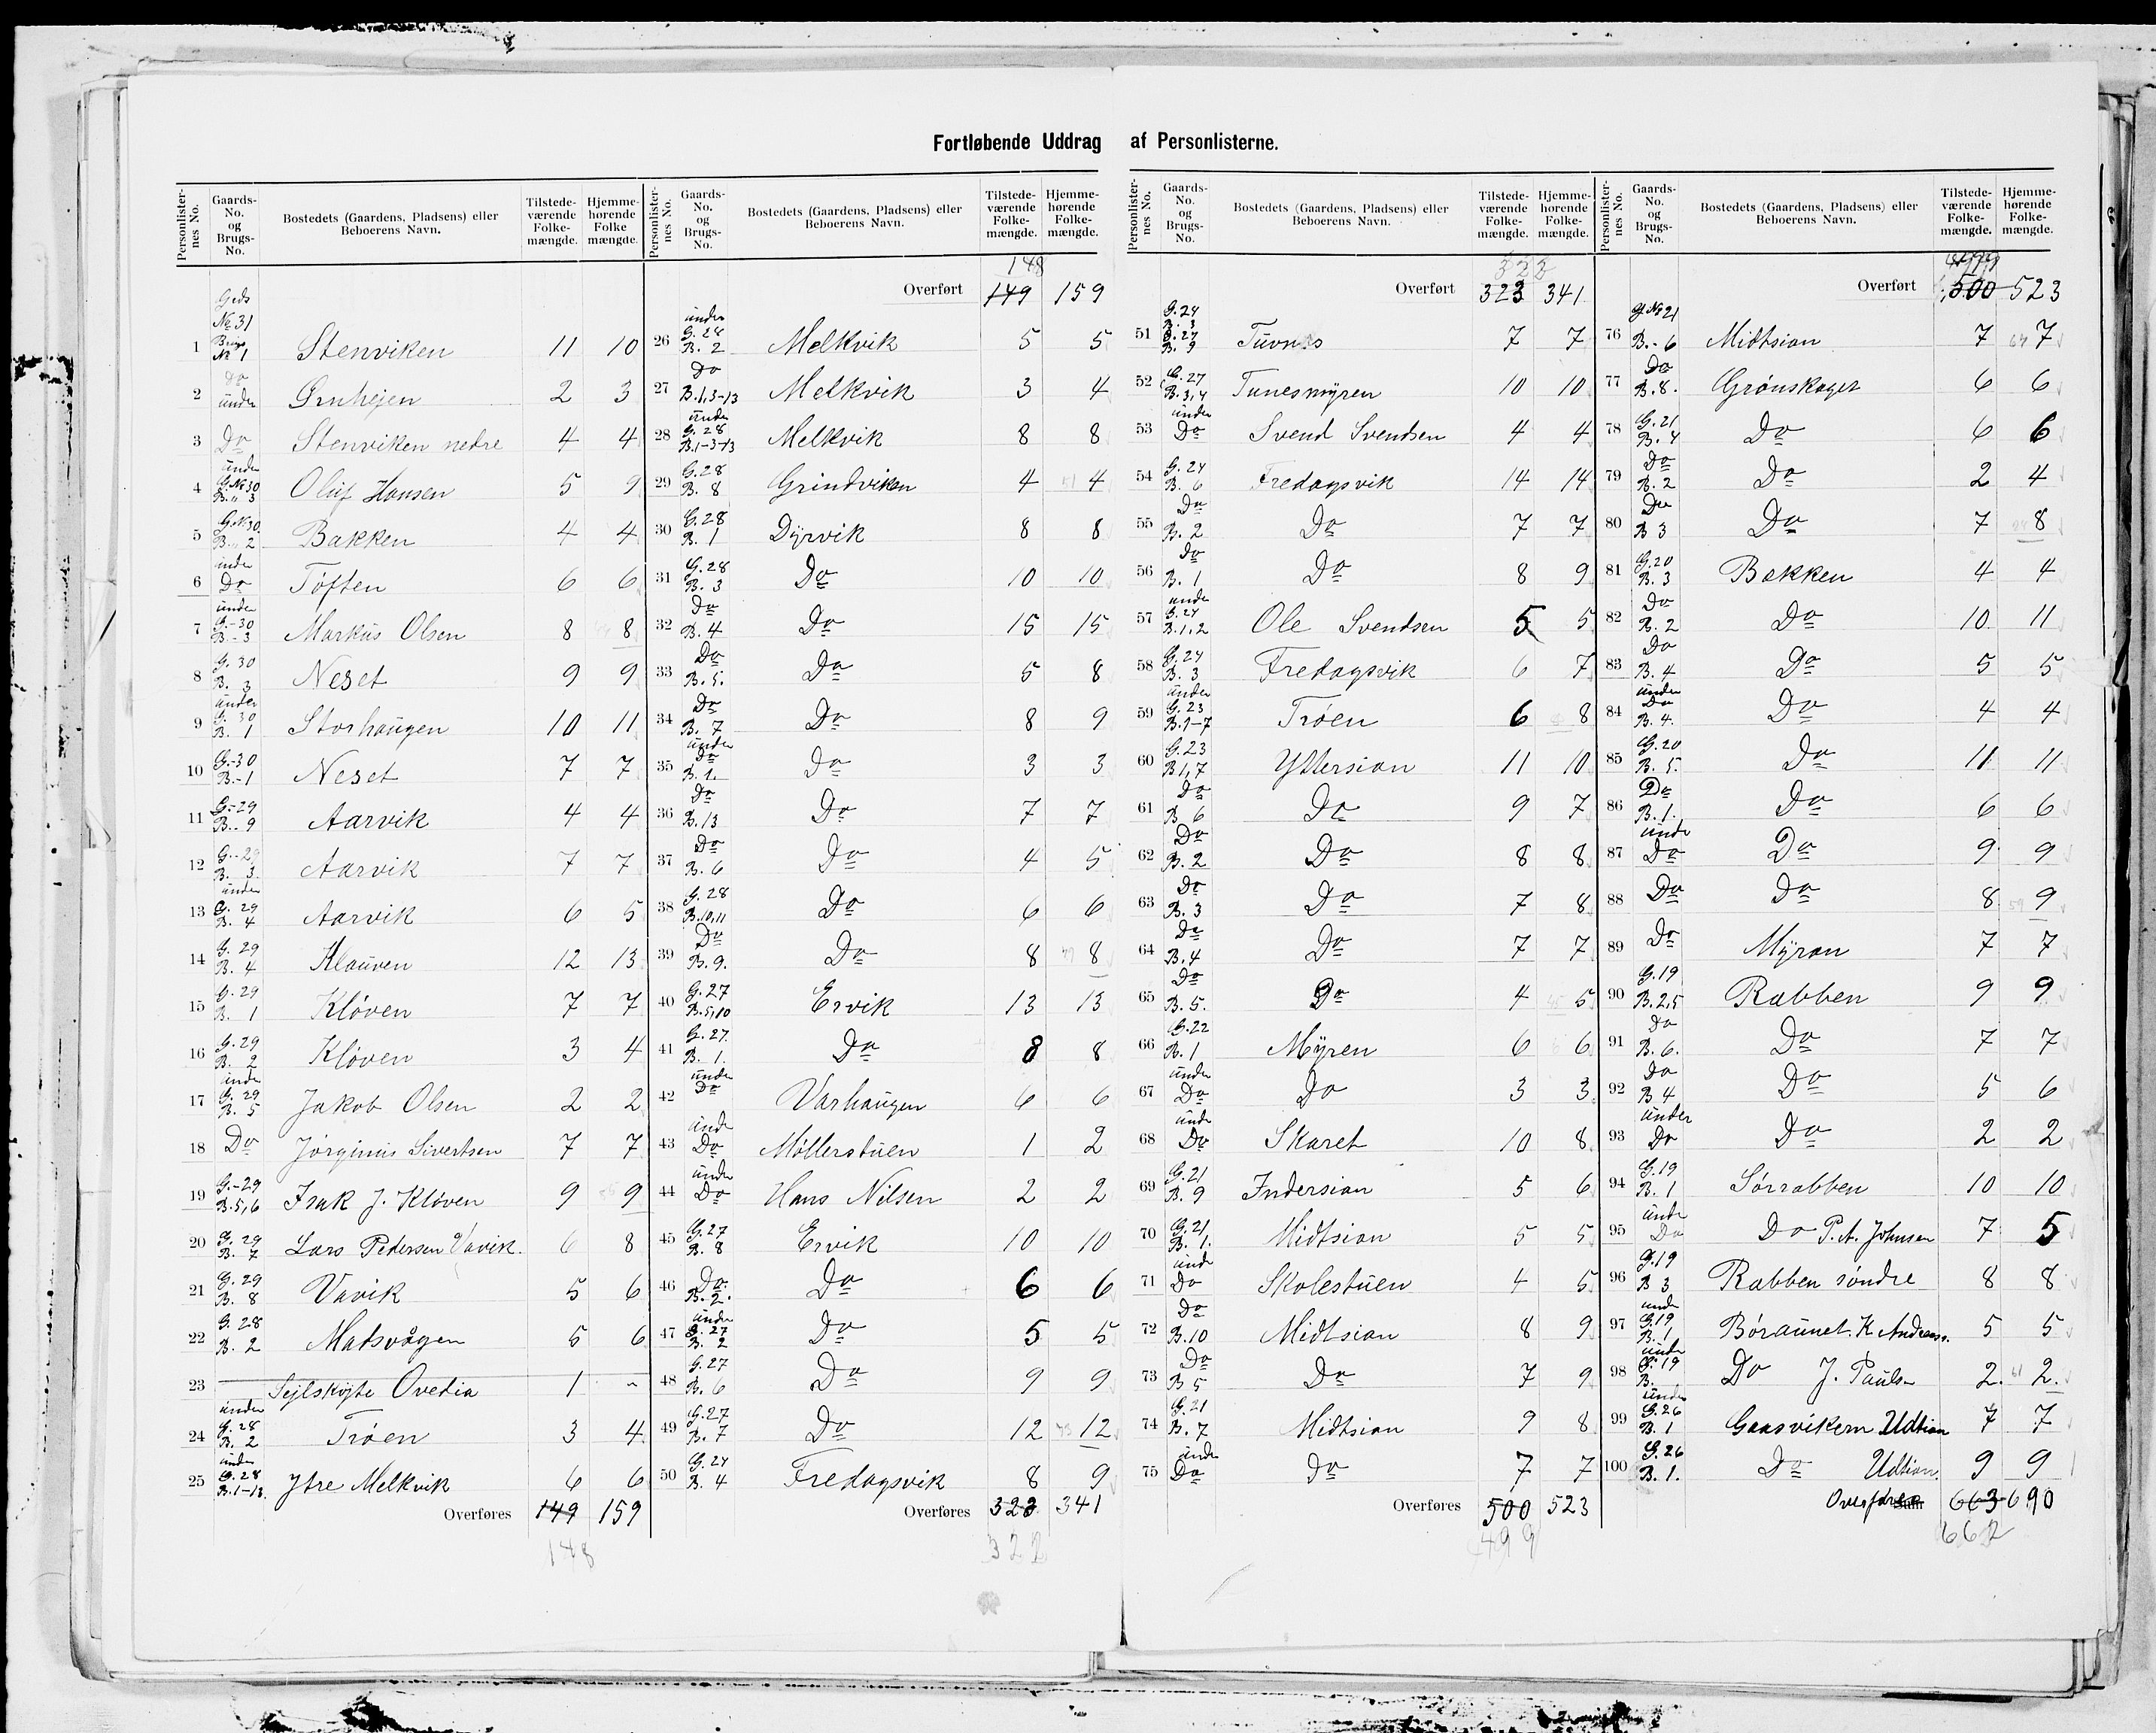 Fortløbende Uddrag af Personlisterne.
Personlister-nes No. Gaards-No. og Brugs-No. Bostedets (Gaardens, Pladsens) eller Beboerens Navn. Tilstede-værende Folke-mængde. Hjemme-hørende Folke mængde.
Geds
1 No 31 Brugs No 1 Stenviken 11 10
2 Do under 2 3
3 Do Stenviken nedre 4 4
4 under G. No 30 B. " 3 Oluf Hansen 5 9
5 G. N. 30. B. " 2 Bakken 4 4
6 under Do Tøften 6 6
7 under G.-30 B.-3 Markus Olsen 8 8
8 G. 30 B. 3 Neset 9 9
9 under G. 30 B. 1 Storhaugen 10 11
10 G.-30 B.-1 Neset 7 7
11 G.-29 B.-9 Aarvik 4 4
12 G.-29 B. 3. Aarvik 7 7
13 under G. 29 B. 4 Aarvik 6 5
14 G. 29 B. 4 Klauven 12 13
15 G. 29 B. 1 Kløven 7 7
16 G. 29 B. 2 Kløven 3 4
17 under G. 29 B. 5 Jakob Olsen 2 2
18 Do Jørginus Sivertsen 7 7
19 G.-29 B. 5,6 Isak J. Kløven 9 9
20 G. 29 B. 7 Lars Pedersen Vavik. 6 8
21 G. 29 B. 8 Vavik 5 6
22 G. 28 B. 2 Matsvågen 5 6
23 Sejlskøjte Ovedia 1 -
24 under G. 28 B. 2 Trøen 3 4
25 under G. 28 B. 1-13. Ytre Melkvik 6 6
Overføres 149 159
148
Personlister-nes No. Gaards-No. og Brugs-No. Bostedets (Gaardens, Pladsens) eller Beboerens Navn. Tilstede-værende Folke-mængde. Hjemme-hørende Folke-mængde.
148
Overført 149 159
26 under G. 28 B. 2 Melkvik 5 5
27 Do B. 1,3-13 Melkvik 3 4
28 under G. 28 B. 1-3-13 Melkvik 8 8
29 G. 28 B. 8 Grindviken 4 4
30 G. 28 B. 1 Dyrvik 8 8
31 G. 28 B. 3 Do 10 10
32 Do B. 4 Do 15 15
33 Do B. 5. Do 5 8
34 Do B. 7 Do 8 9
35 under Do B. 1. Do 3 3
36 Do B. 13 Do 7 7
37 Do B. 6 Do 4 5
38 G. 28 B. 10,11 Do 6 6
39 Do B. 9. Do 8 8
40 G. 27 B. 5,10 Ervik 13 13
41 G. 27. B. 1. Do 8 8
42 under Do Varhaugen 6 6
43 under Do Møllerstuen 1 2
44 under Do Hans Nilsen 2 2
45 G. 27 B. 8 Ervik 10 10
46 Do B. 2. Do 6 6
47 under G. 27 B. 2 Do 5 5
48 G. 27 B. 6 Do 9 9
49 G. 27 B. 7 Do 12 12
50 G. 24 B. 4 Fredagsvik 8 9
Overføres 323 341
322
Personlister-nes No. Gaards-No. og Brugs-No. Bostedets (Gaardens, Pladsens) eller Beboerens Navn. Tilstede-værende Folke-mængde. Hjemme-hørende Folke-mængde.
322
Overført 323 341
51 G. 24 B. 3 G. 27 B. 9 7 7
52 G. 27 B. 3,4 Tunesmyren 10 10
53 under Do Svend Svendsen 4 4
54 G. 24 B. 6 Fredagsvik 14 14
55 Do B. 2 Do 7 7
56 Do B. 1 Do 8 9
57 under G. 24 B. 1,2 Ole Svendsen 5 5
58 G. 24 B. 3 Fredagsvik 6 7
59 under G. 23 B. 1-7 Trøen 6 8
60 G. 23 B 1,7 Yttersian 11 10
61 Do B 6 Do 9 7
62 Do B. 2 Do 8 8
63 Do B. 3 Do 7 8
64 Do B. 4 Do 7 7
65 Do B. 5. Do 4 5
66 G. 22 B. 1 Myren 6 6
67 under Do Do 3 3
68 under Do Skaret 10 8
69 G. 21 B. 9 Indersian 5 6
70 G. 21 B. 1. Midtsian 5 5
71 und Do Skolestuen 4 5
72 Do B. 10 Midtsian 8 9
73 Do B 5 Do 7 9
74 G. 21 B. 7 Midtsian 9 8
75 under Do Do 7 7
Overføres 500 523
499
Personlister-nes No. Gaards-No. og Brugs-No. Bostedets (Gaardens, Pladsens) eller Beboerens Navn. Tilstede-værende Folke-mængde. Hjemme-hørende Folke-mængde.
499
Overført 500 523
76 G No 21 B.-6 Midtsian 7 7
77 Do B. 8. Grønskaget 6 6
78 G. 21 B. 4 Do 6 6
79 Do B. 2 Do 2 4
80 Do B 3 Do 7 8
81 G. 20 B. 3 Bakken 4 4
82 Do B. 2 Do 10 11
83 Do B. 4 Do 5 5
84 under Do B. 4. Do 4 4
85 G. 20 B. 5. Do 11 11
86 Do B. 1. Do 6 6
87 under Do Do 9 9
88 Do Do 8 9
89 Do Myran 7 7
90 G. 19 B. 2,5 Rabben 9 9
91 Do B. 6. Do 7 7
92 Do B 4 Do 5 6
93 under Do Do 2 2
94 G. 19 B. 1 Sørrabben 10 10
95 under Do Do P. A. Johnsen 7 5
96 G. 19 B 3 Rabben søndre 8 8
97 under G. 19 B. 1 Børaunet. K Andreass. 5 5
98 under G. 19 B. Do J. Pauls- 2. 2.
99 under G. 26 B. 1 Gaasvikern Udtian 7 7
100 G. 26 B. 1. Do Udtian. 9 9
Overføres 663 690
662